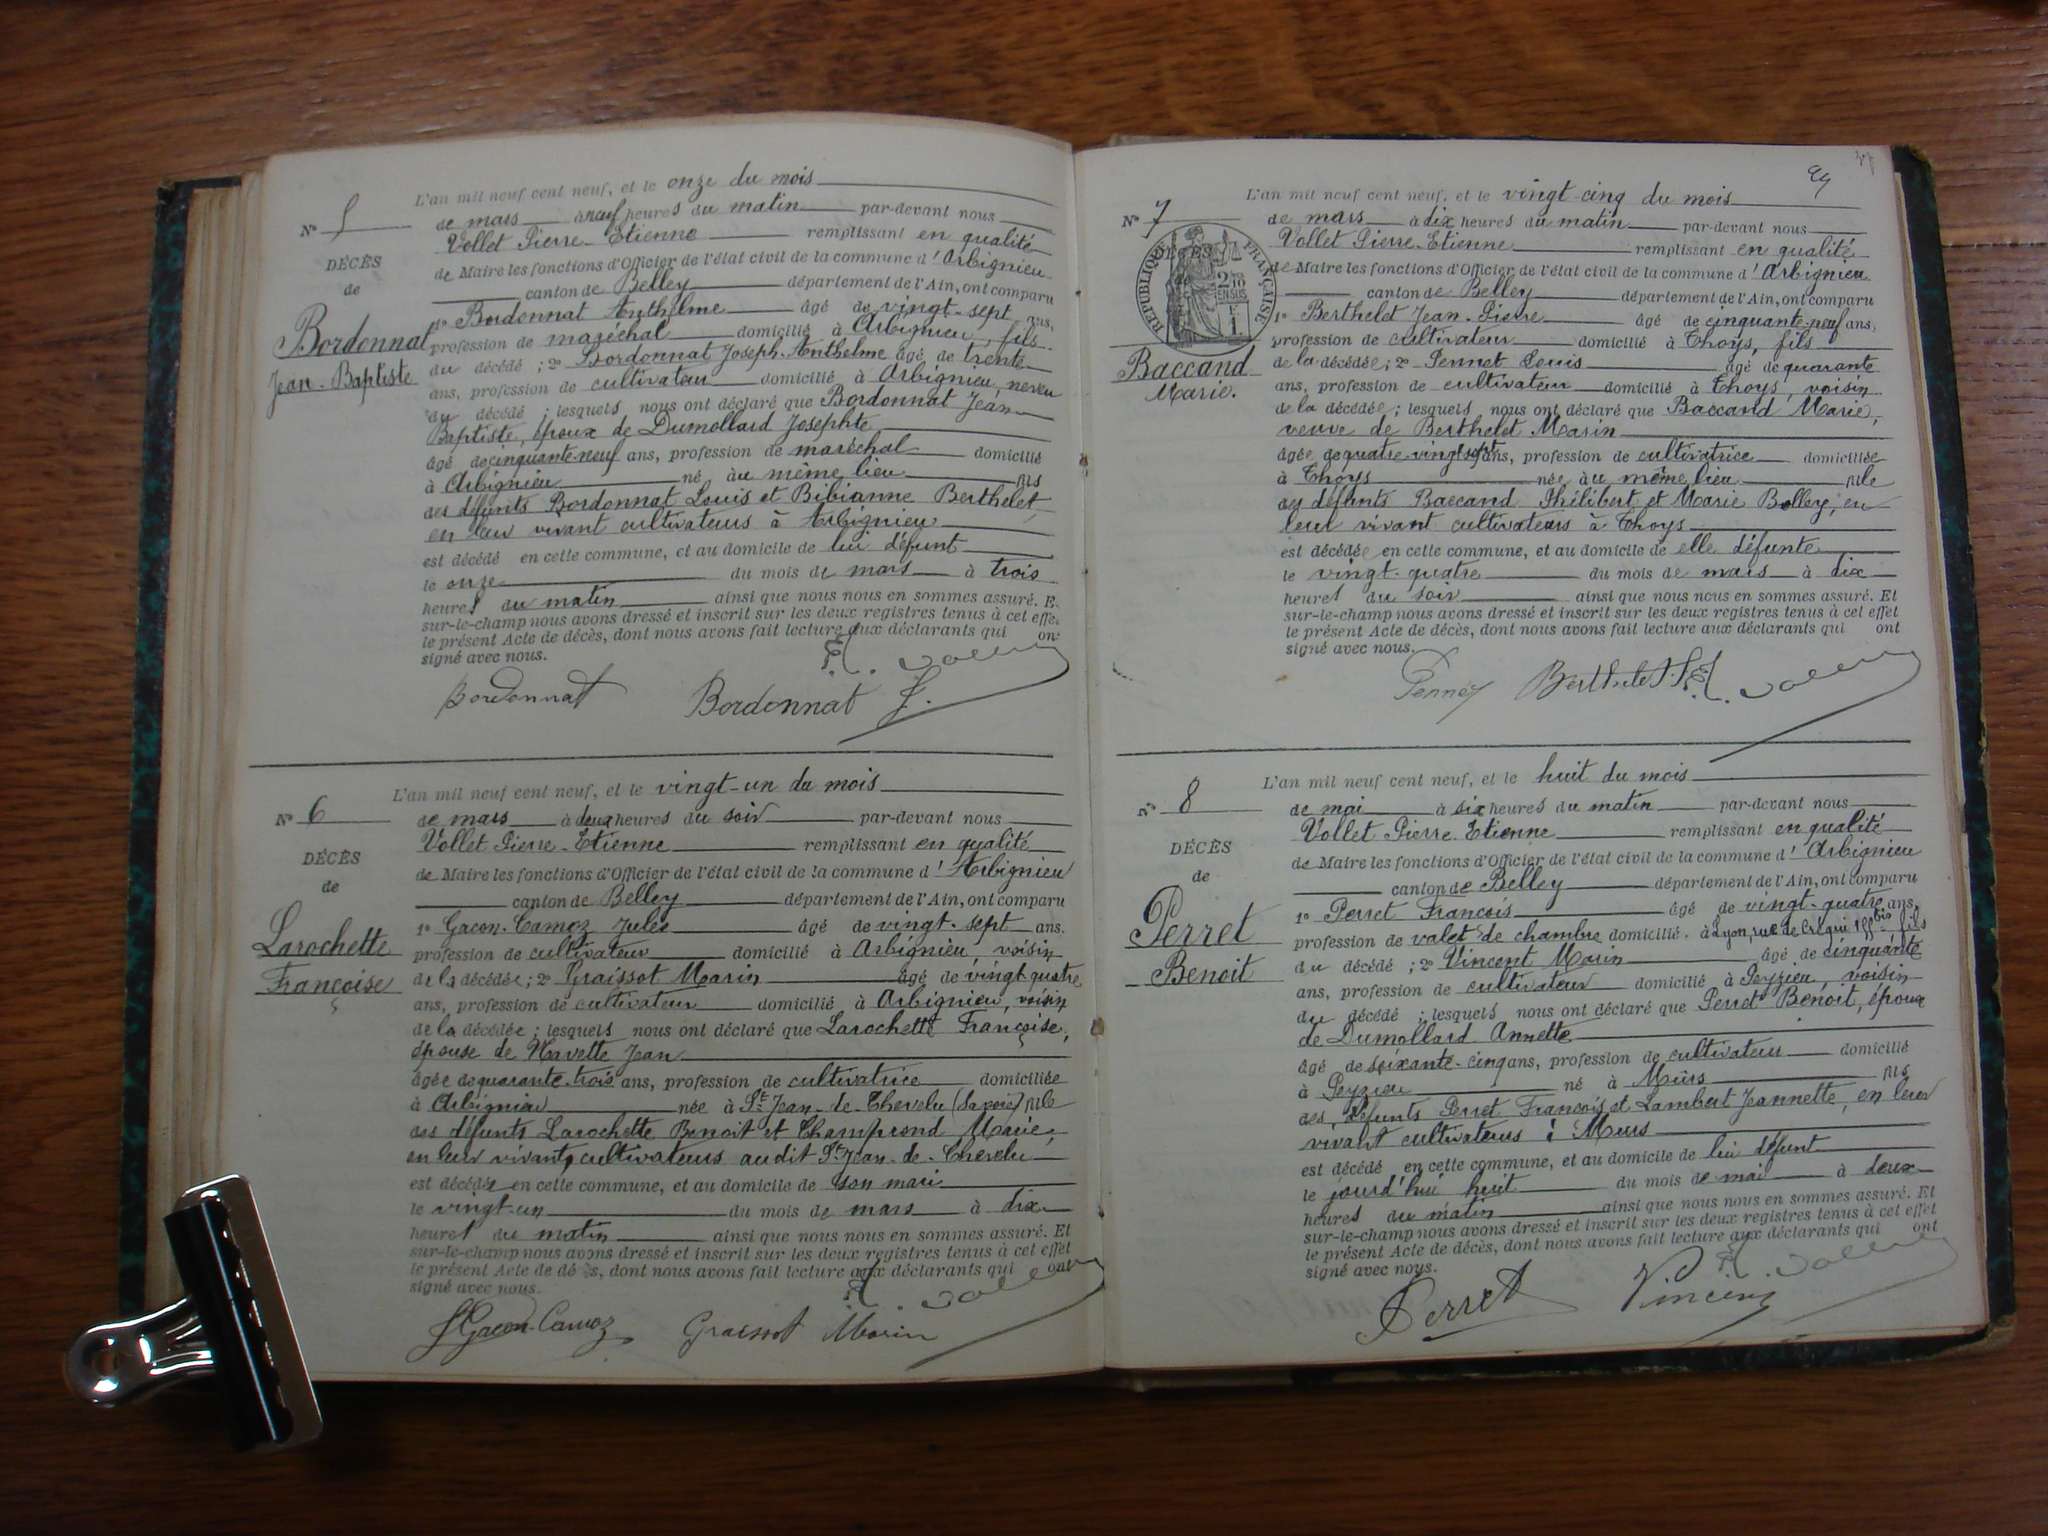 L'an mil neuf cent neuf, et le onze du mois
N° 5
de mars à neuf heures du matin par-devant nous
Vollet Pierre-Etienne remplissant en qualité
DÉCÈS
de Maire les fonctions d'Officier de l'état civil de la commune d'Arbignieu
de
canton de Belley département de l'Ain, ont comparu
1° Bordonnat Anthelme âgé de vingt-sept ans,
Bordonnat
profession de maréchal domicilié à Arbignieu, fils
du décédé ; 2° Bordonnat Joseph-Anthelme âgé de trente
Jean-Baptiste
ans, profession de cultivateur domicilié à Arbignieu, neveu
du décédé ; lesquels nous ont déclaré que Bordonnat Jean
Baptiste, époux de Dumollard Josephte
âgé de cinquante-neuf ans, profession de maréchal domicilié
à Arbignieu né au même lieu fils
des défunts Bordonnat Louis et Bibianne Berthelet,
en leur vivant cultivateurs à Arbignieu
est décédé en cette commune, et au domicile de lui défunt
le onze du mois de mars à trois
heures du matin ainsi que nous nous en sommes assuré. E
sur-le-champ nous avons dressé et inscrit sur les deux registres tenus à cet effet
le présent Acte de décès, dont nous avons fait lecture aux déclarants qui ont
signé avec nous.
Bordonnat Bordonnat J. Vollet
L'an mil neuf cent neuf, et le vingt-un du mois
N° 6
de mars à deux heures du soir par-devant nous
Vollet Pierre-Etienne remplissant en qualité
DÉCÈS
de Maire les fonctions d'Officier de l'état civil de la commune d'Arbignieu
de
canton de Belley département de l'Ain, ont comparu
1° Gacon-Camoz Jules âgé de vingt-sept ans.
Larochette
profession de cultivateur domicilié à Arbignieu, voisin
Françoise
de la décédée ; 2° Graissot Marin âgé de vingt quatre
ans, profession de cultivateur domicilié à Arbignieu, voisin
de la décédée ; lesquels nous ont déclaré que Larochette Françoise,
épouse de Navette Jean
âgée de quarante-trois ans, profession de cultivatrice domiciliée
à Arbignieu née à St Jean-de-Chevelu (Savoie) fille
des défunts Larochette Benoit et Champrond Marie,
en leur vivant, cultivateurs audit St Jean-de-Chevelu
est décédée en cette commune, et au domicile de son mari
le vingt-un du mois de mars à dix
heures du matin ainsi que nous nous en sommes assuré. Et
sur-le-champ nous avons dressé et inscrit sur les deux registres tenus à cet effet
le présent Acte de décès, dont nous avons fait lecture aux déclarants qui ont
signé avec nous.
J Gacon-Camoz Graissot Marin Vollet
24
L'an mil neuf cent neuf, et le vingt-cinq du mois
N° 7
de mars à dix heures du matin par-devant nous
Vollet Pierre-Etienne remplissant en qualité
DÉCÈS
RÉPUBLIQUE FRANÇAISE
2/10 EN SUS
de Maire les fonctions d'Officier de l'état civil de la commune d'Arbignieu
canton de Belley département de l'Ain, ont comparu
1° Berthelet Jean-Pierre âgé de cinquante-neuf ans,
profession de cultivateur domicilié à Thoys, fils
Baccand
de la décédée ; 2° Pennet Louis âgé de quarante
Marie.
ans, profession de cultivateur domicilié à Thoys, voisin
de la décédée ; lesquels nous ont déclaré que Baccand Marie,
veuve de Berthelet Marin
âgée de quatre vingt sept ans, profession de cultivatrice domiciliée
à Thoys née au même lieu fille
des défunts Baccand Philibert et Marie Bolley, en
leur vivant cultivateurs à Thoys
est décédée en cette commune, et au domicile de elle défunte
le vingt-quatre du mois de mars à dix
heures du soir ainsi que nous nous en sommes assuré. Et
sur-le-champ nous avons dressé et inscrit sur les deux registres tenus à cet effet
le présent Acte de décès, dont nous avons fait lecture aux déclarants qui ont
signé avec nous.
Pennet Berthelet J. P. Vollet
L'an mil neuf cent neuf, et le huit du mois
N° 8
de mai à six heures du matin par-devant nous
Vollet Pierre-Etienne remplissant en qualité
DÉCÈS
de Maire les fonctions d'Officier de l'état civil de la commune d'Arbignieu
de
canton de Belley département de l'Ain, ont comparu
1° Perret François âgé de vingt-quatre ans,
Perret
profession de valet de chambre domicilié à Lyon, rue de Créqui bis, fils
du décédé ; 2° Vincent Marin âgé de cinquante
Benoit
ans, profession de cultivateur domicilié à Peyzieu, voisin
du décédé ; lesquels nous ont déclaré que Perret Benoit, époux
de Dumollard Annette
âgé de soixante-cinq ans, profession de cultivateur domicilié
à Peyzieu né à Mûrs fils
des défunts Perret François et Lambert Jeannette, en leur
vivant cultivateurs à Murs
est décédé en cette commune, et au domicile de lui défunt
le jourd'hui huit du mois de mai à deux
heures du matin ainsi que nous nous en sommes assuré. Et
sur-le-champ nous avons dressé et inscrit sur les deux registres tenus à cet effet
le présent Acte de décès, dont nous avons fait lecture aux déclarants qui ont
signé avec nous.
Perret Vincent Vollet